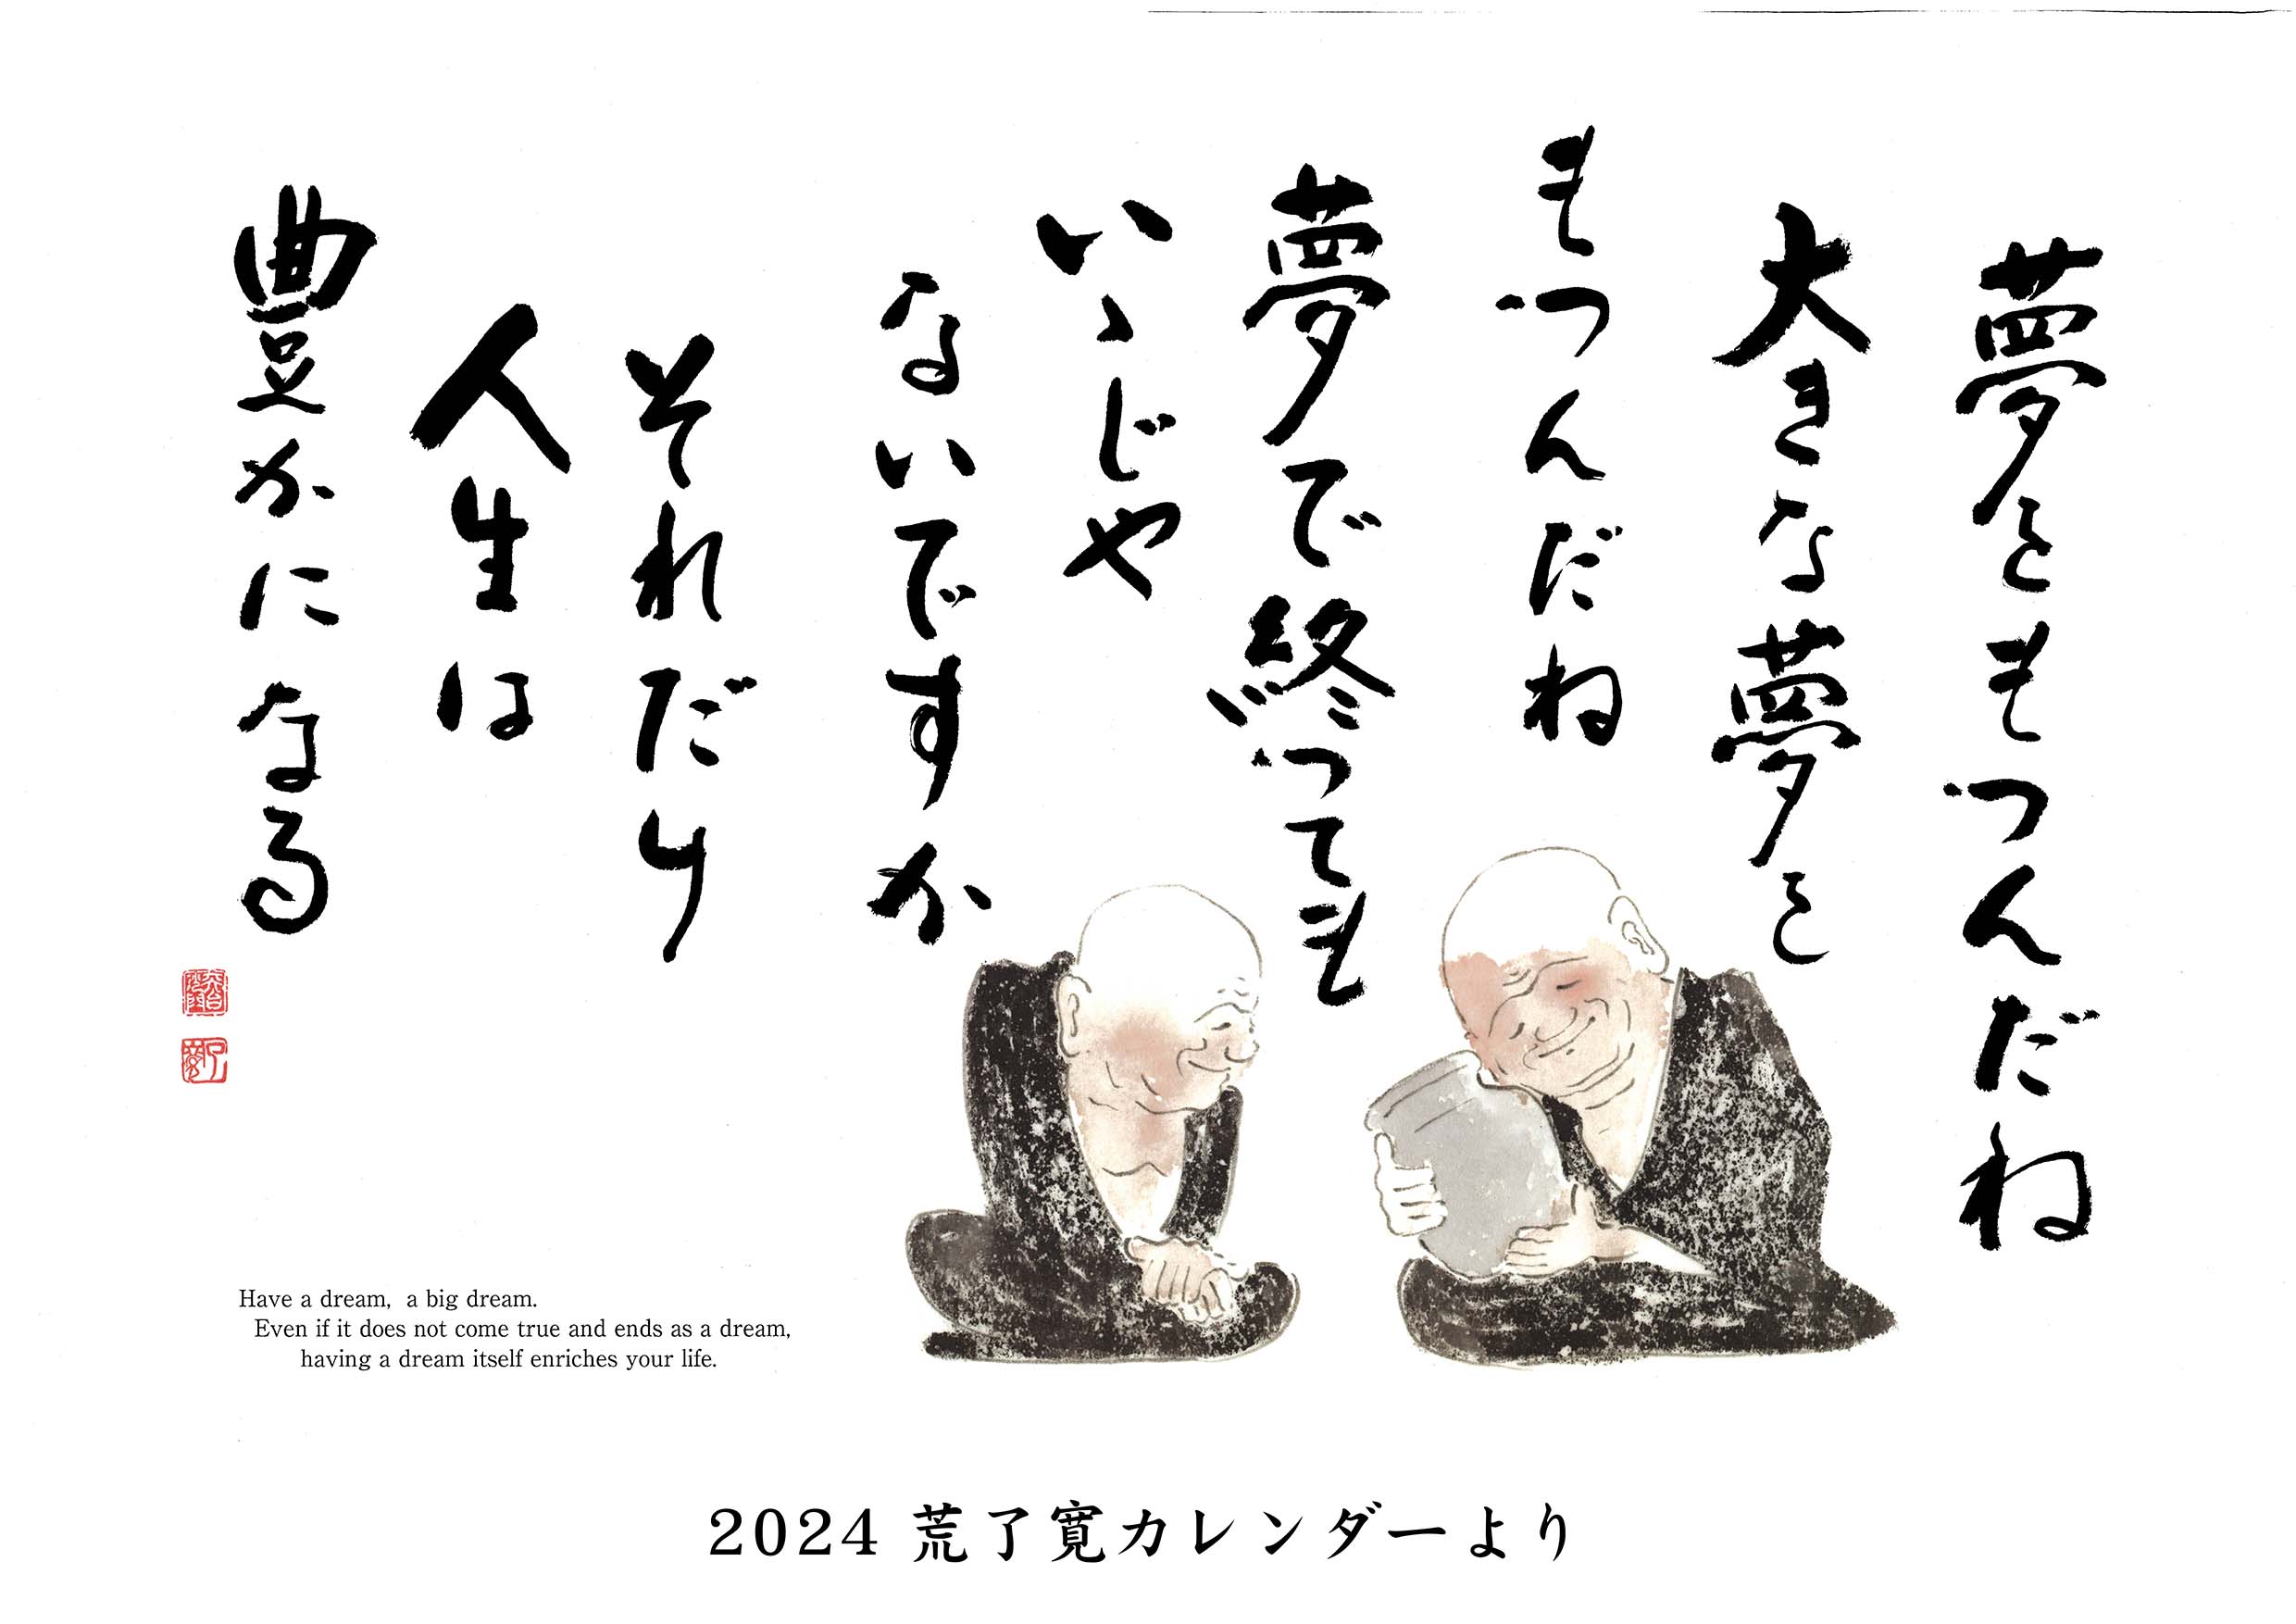 夢をもつんだね
大きな夢を
もつんだね
夢で終つても
いゝじや
ないですか
それだけ
人生は
豊かになる
Have a dream, a big dream.
Even if it does not come true and ends as a dream,
having a dream itself enriches your life.
2024 荒了寛カレンダーより